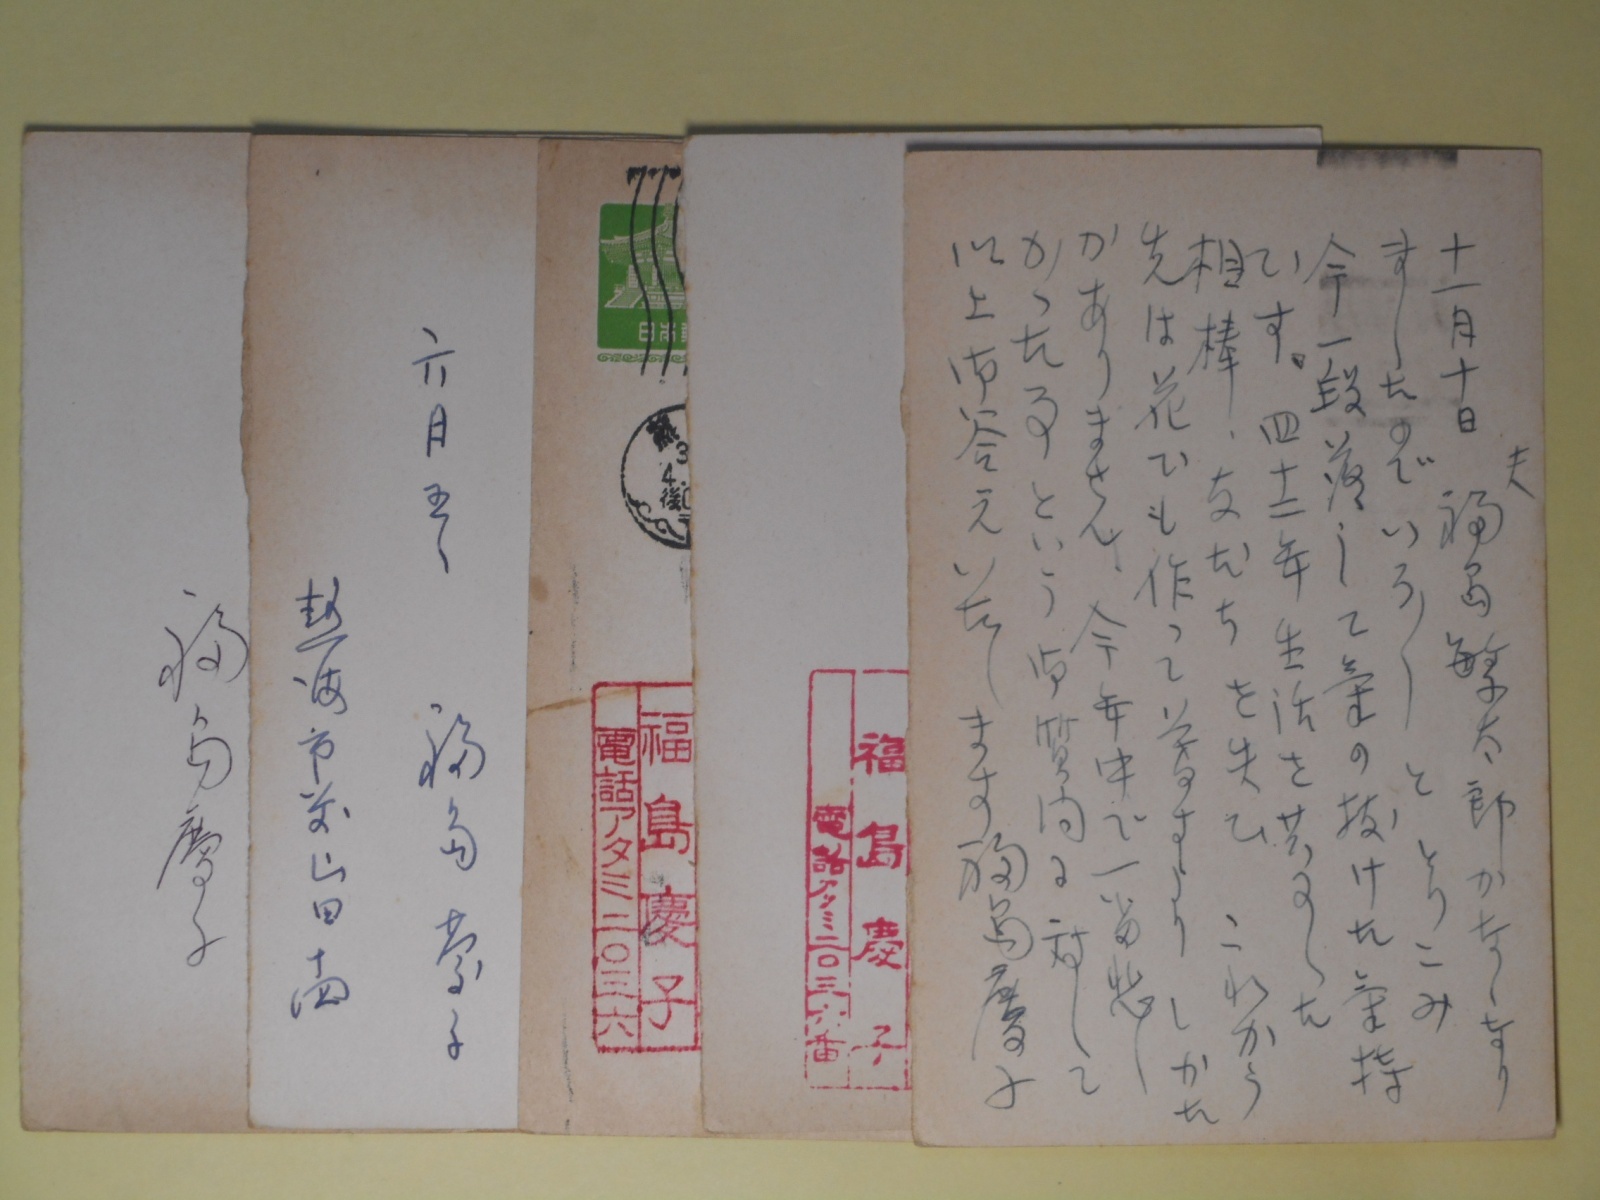 十一月十日 夫 福島繁太郎がなくなり
ましたのでいろ〳〵ととりこみ
今一段落して気の抜けた気持
です。四十二年生活を共にした
相棒、友だちを失ひ これから
先は花でも作って暮すより しかた
がありません、今年中で一番悲し
かった事という御質問に対して
以上御答えいたします 福島慶子
福島慶子
電話アタミ二〇三六番
日本郵
熱
後
福島慶子
電話アタミ二〇三六
六月五日
福島慶子
熱海市
福島慶子